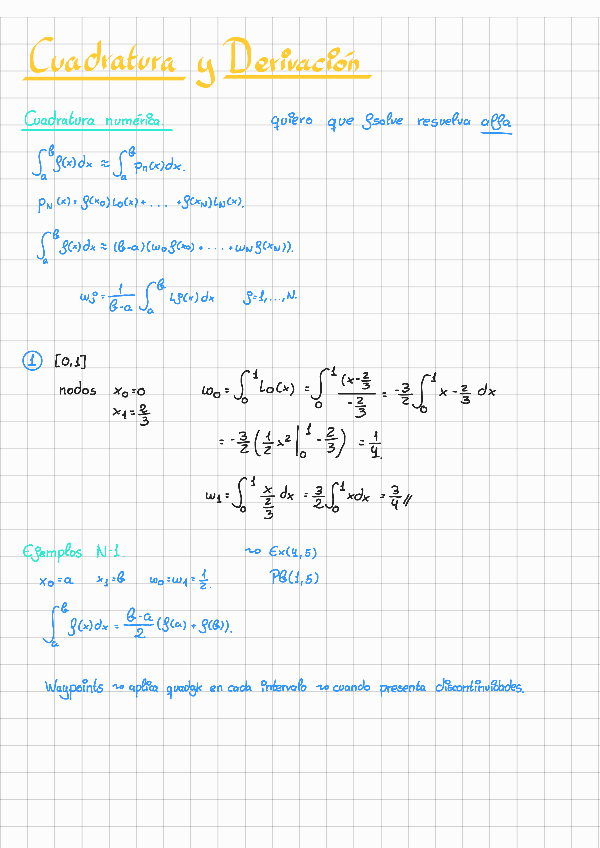 Cuadratura y Derivación
Cuadratura numérica
quiero que fsolve resuelva alfa
∫_a^b f(x)dx ≈ ∫_a^b p_n(x)dx.
p_N(x) = f(x_0)L_0(x) + ... + f(x_N)L_N(x).
∫_a^b f(x)dx ≈ (b-a)(w_0 f(x_0) + ... + w_N f(x_N)).
w_j = 1/(b-a) ∫_a^b L_j(x)dx   j=1,...,N.
① [0,1]
nodos x_0=0
x_1=2/3
w_0 = ∫_0^1 L_0(x) = ∫_0^1 (x-2/3)/(-2/3) = -3/2 ∫_0^1 x-2/3 dx
= -3/2 (1/2 x² |_0^1 - 2/3) = 1/4.
w_1 = ∫_0^1 x/(2/3) dx = 3/2 ∫_0^1 xdx = 3/4 //
Ejemplos N-1.
x_0=a x_1=b w_0=w_1=1/2.
∫_a^b f(x)dx = (b-a)/2 (f(a) + f(b)).
~> Ex(4,5)
Pb(1,5)
Waypoints ~> aplica quadgk en cada intervalo ~> cuando presenta discontinuidades.